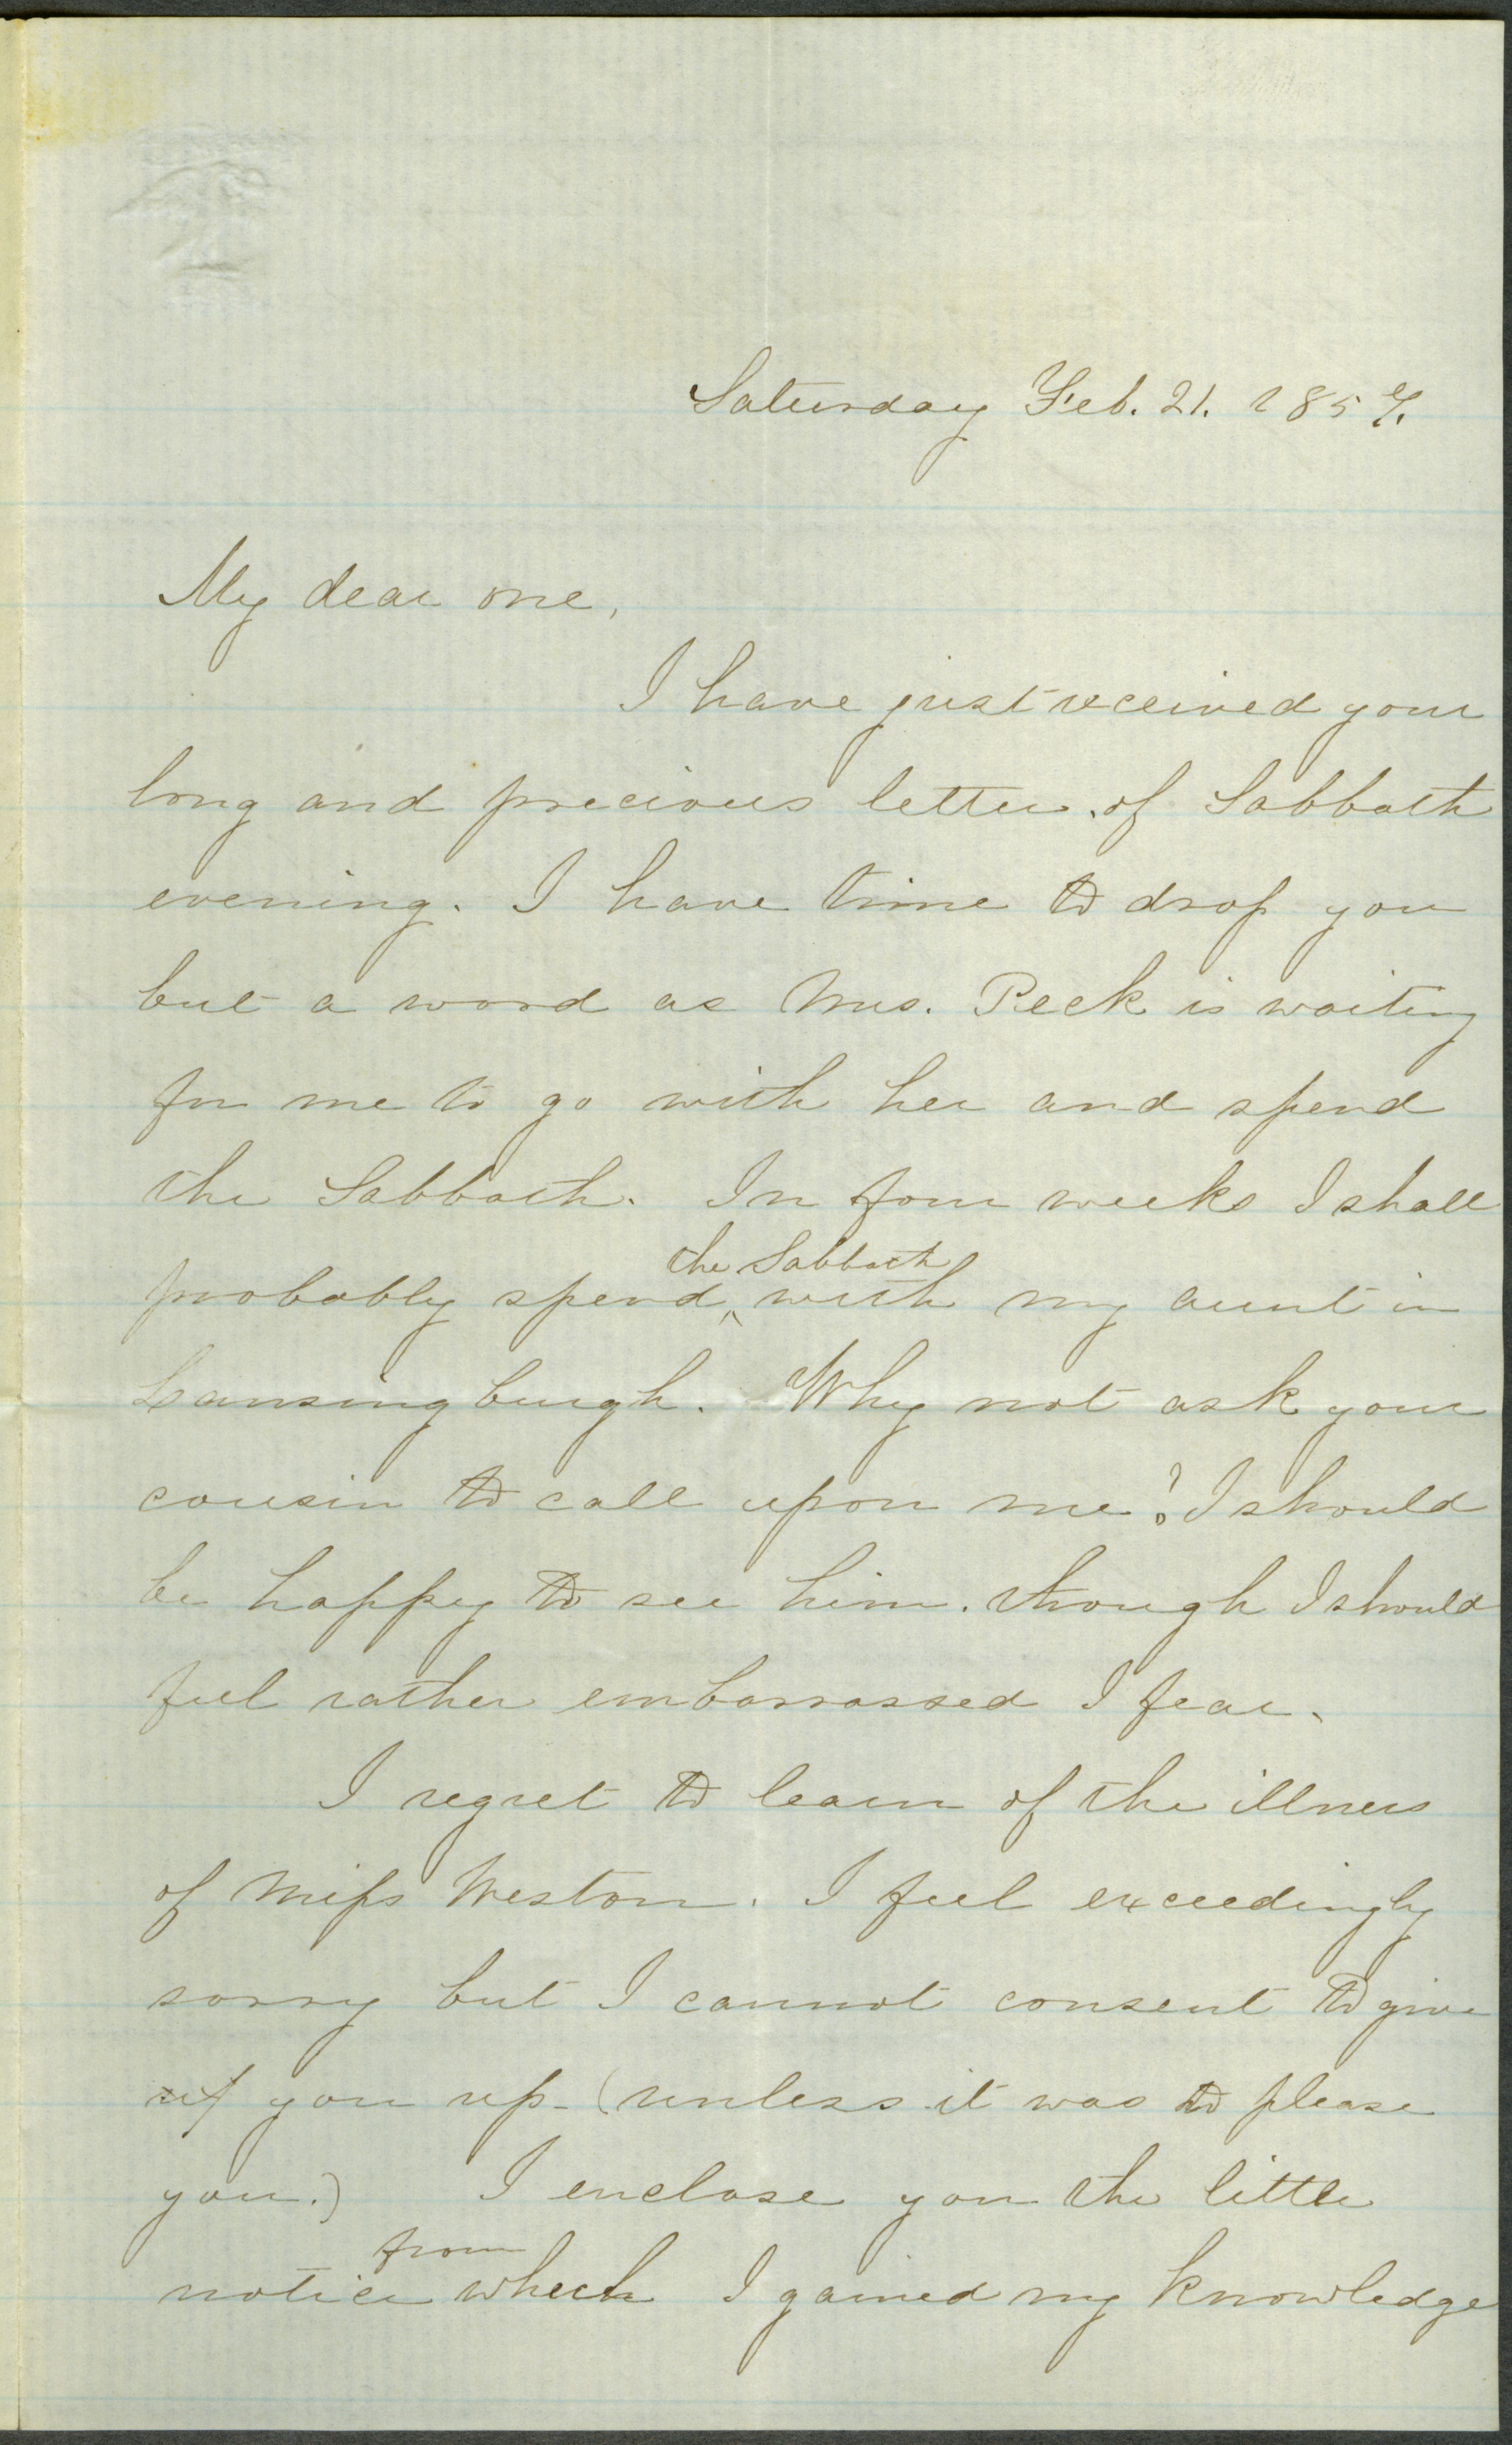 Saturday Feb. 21. 1857.
My dear one,
I have just received your
long and precious letter of Sabbath
evening. I have time to drop you
but a word as Mrs. Peck is waiting
for me to go with her and spend
the Sabbath. In four weeks I shall
the Sabbath
probably spend ^ with my aunt in
Lansingburgh. Why not ask your
cousin to call upon me? I should
be happy to see him. though I should
feel rather embarrassed I fear.
I regret to learn of the illness
of Miss Weston. I feel exceedingly
sorry but I cannot consent to give
you up - (unless it was to please
you.) I enclose you the little
from
notice which I gained my knowledge